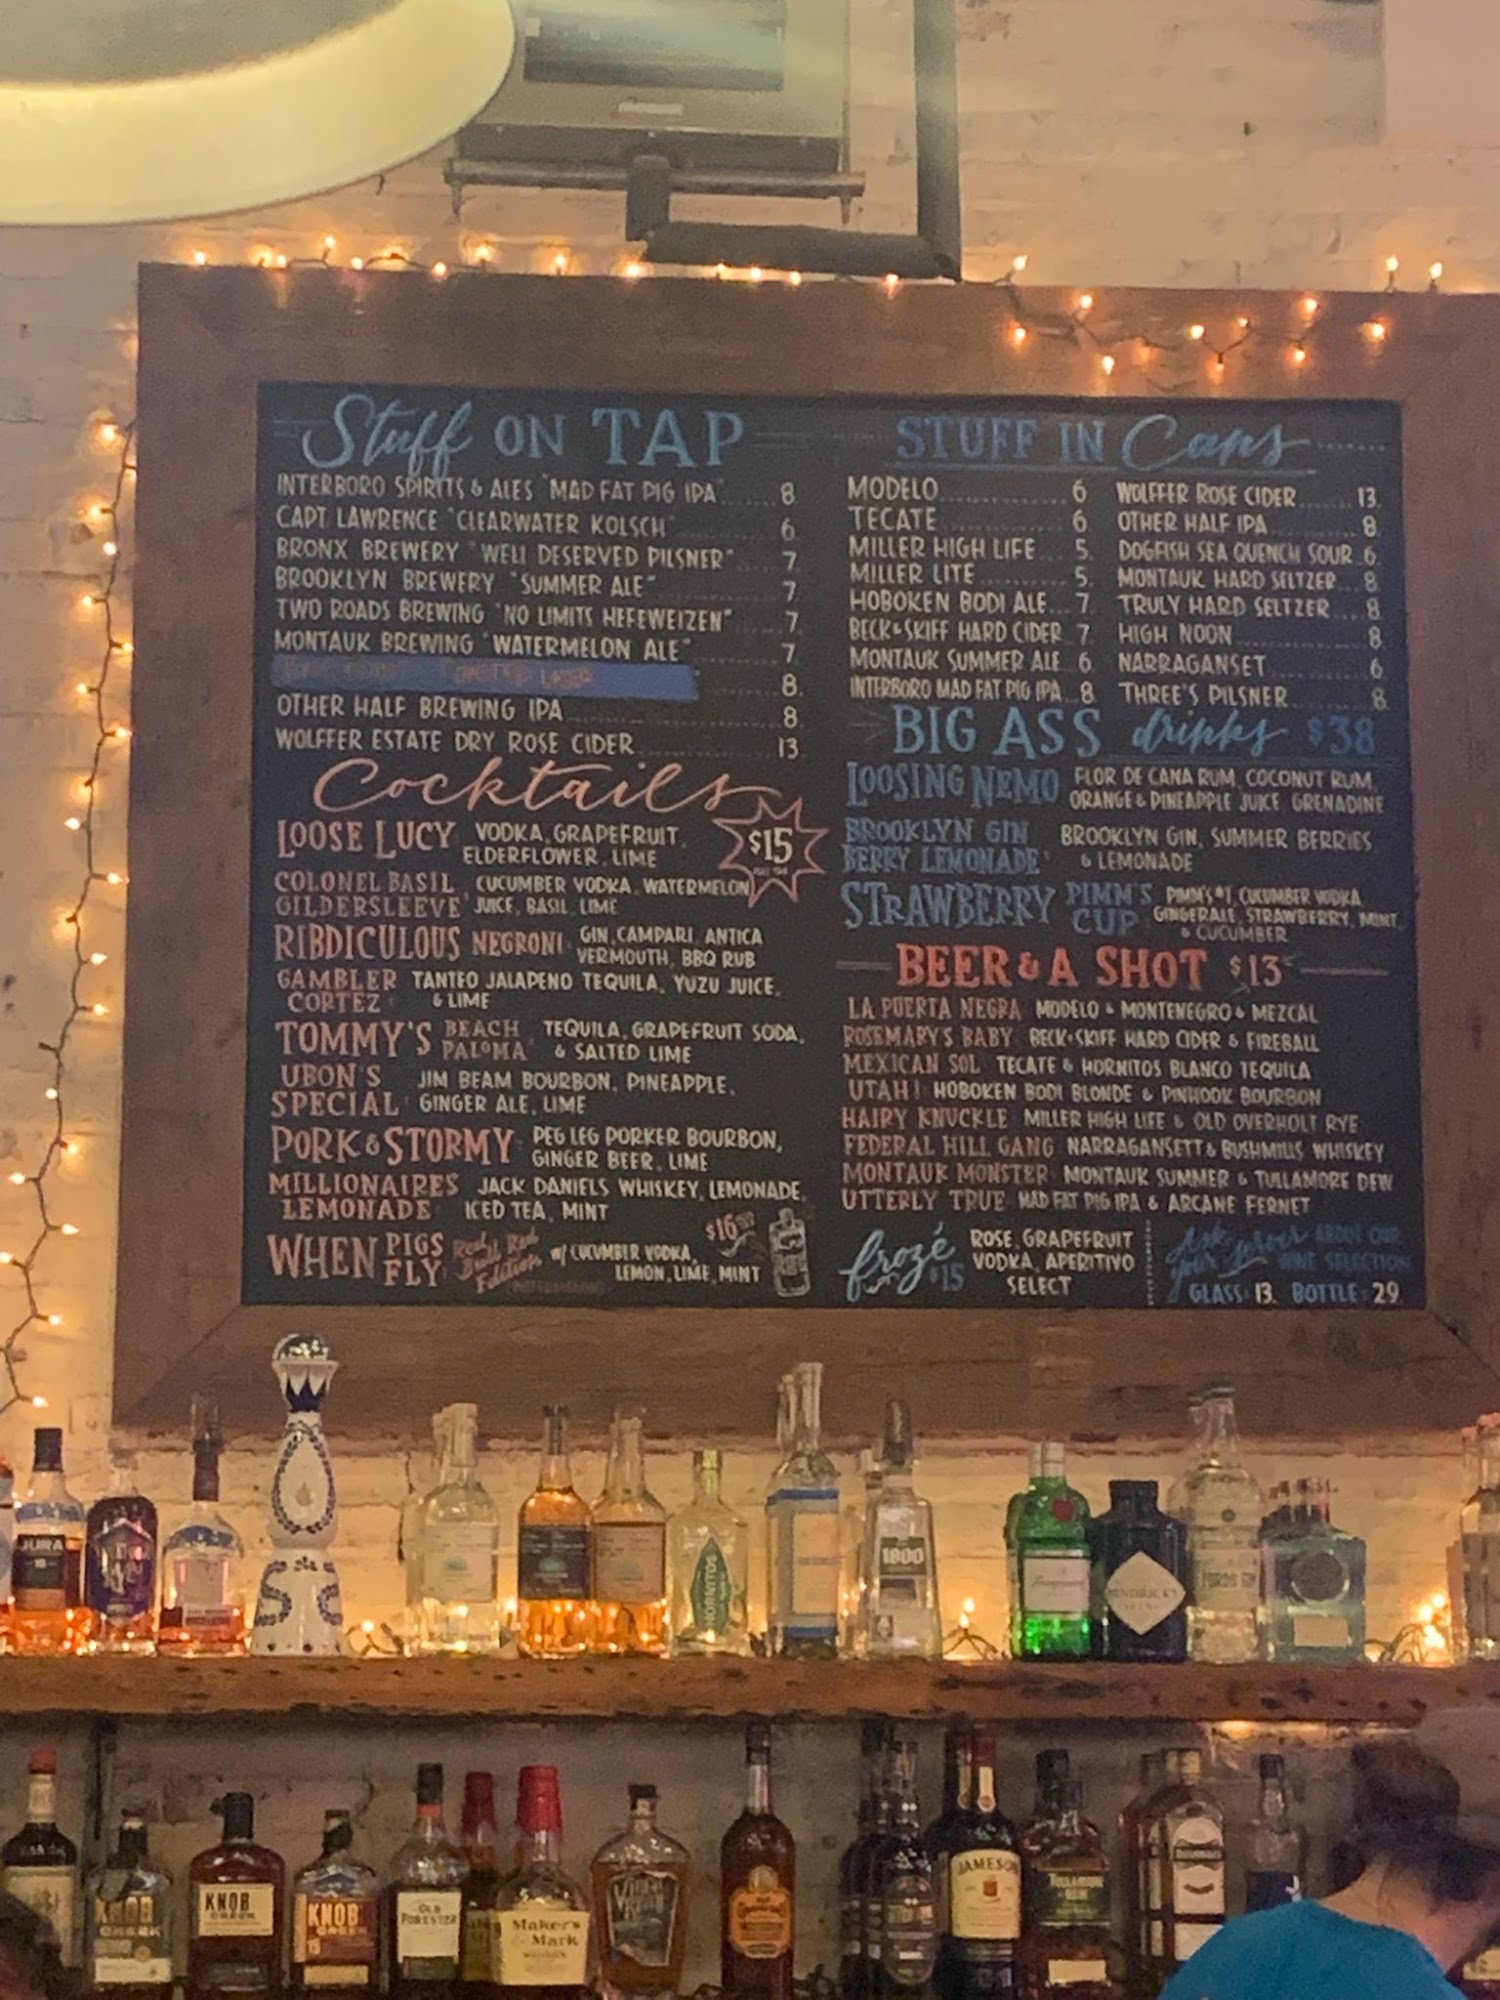 Stuff ON TAP
INTERBORO SPIRITS & ALES "MAD FAT PIG IPA" 8
CAPT LAWRENCE "CLEARWATER KOLSCH" 6
BRONX BREWERY "WELL DESERVED PILSNER" 7
BROOKLYN BREWERY "SUMMER ALE" 7
TWO ROADS BREWING "NO LIMITS HEFEWEIZEN" 7
MONTAUK BREWING "WATERMELON ALE" 7
8
OTHER HALF BREWING IPA 8
WOLFFER ESTATE DRY ROSE CIDER 13
Cocktails
$15
LOOSE LUCY VODKA, GRAPEFRUIT,
ELDERFLOWER, LIME
COLONEL BASIL CUCUMBER VODKA, WATERMELON
GILDERSLEEVE JUICE, BASIL, LIME
RIBDICULOUS NEGRONI GIN, CAMPARI, ANTICA
VERMOUTH, BBQ RUB
GAMBLER TANTEO JALAPENO TEQUILA, YUZU JUICE,
CORTEZ & LIME
TOMMY'S BEACH TEQUILA, GRAPEFRUIT SODA,
PALOMA & SALTED LIME
UBON'S JIM BEAM BOURBON, PINEAPPLE,
SPECIAL GINGER ALE, LIME
PORK & STORMY PEG LEG PORKER BOURBON,
GINGER BEER, LIME
MILLIONAIRES JACK DANIELS WHISKEY, LEMONADE,
LEMONADE ICED TEA, MINT
WHEN PIGS FLY Red Bull Red Edition w/ CUCUMBER VODKA,
LEMON, LIME, MINT
$16
STUFF IN Cans
MODELO 6
TECATE 6
MILLER HIGH LIFE 5
MILLER LITE 5
HOBOKEN BODI ALE 7
BECK & SKIFF HARD CIDER 7
MONTAUK SUMMER ALE 6
INTERBORO MAD FAT PIG IPA 8
WOLFFER ROSE CIDER 13
OTHER HALF IPA 8
DOGFISH SEA QUENCH SOUR 6
MONTAUK HARD SELTZER 8
TRULY HARD SELTZER 8
HIGH NOON 8
NARRAGANSET 6
THREE'S PILSNER 8
BIG ASS drinks $38
LOOSING NEMO FLOR DE CANA RUM, COCONUT RUM,
ORANGE & PINEAPPLE JUICE GRENADINE
BROOKLYN GIN BROOKLYN GIN, SUMMER BERRIES
BERRY LEMONADE & LEMONADE
STRAWBERRY PIMM'S CUP PIMM'S #1, CUCUMBER VODKA
GINGERALE, STRAWBERRY, MINT
& CUCUMBER
BEER & A SHOT $13
LA PUERTA NEGRA MODELO & MONTENEGRO & MEZCAL
ROSEMARY'S BABY BECK & SKIFF HARD CIDER & FIREBALL
MEXICAN SOL TECATE & HORNITOS BLANCO TEQUILA
UTAH! HOBOKEN BODI BLONDE & PINHOOK BOURBON
HAIRY KNUCKLE MILLER HIGH LIFE & OLD OVERHOLT RYE
FEDERAL HILL GANG NARRAGANSETT & BUSHMILLS WHISKEY
MONTAUK MONSTER MONTAUK SUMMER & TULLAMORE DEW
UTTERLY TRUE MAD FAT PIG IPA & ARCANE FERNET
frozé $15 ROSE, GRAPEFRUIT
VODKA, APERITIVO
SELECT
Ask your server ABOUT OUR
WINE SELECTION
GLASS: 13 BOTTLE: 29
JURA
HORNITOS
1800
HENDRICK'S
FORDS GIN
KNOB CREEK
KNOB
KNOB
OLD FORESTER
Maker's Mark
JAMESON
TULLAMORE